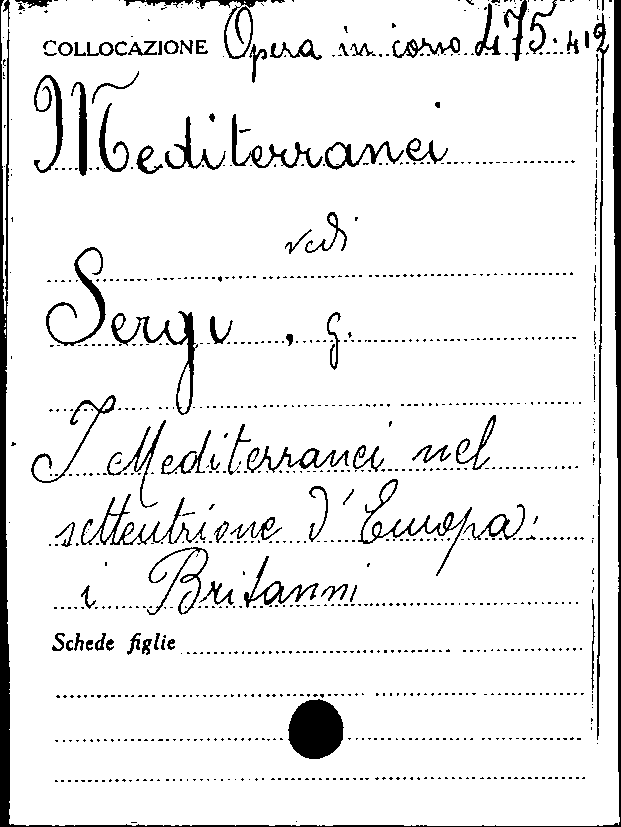 COLLOCAZIONE Opera in corso 475.412
Mediterranei
vedi
Sergi, G.
I Mediterranei nel
settentrione d'Europa:
i Britanni
Schede figlie